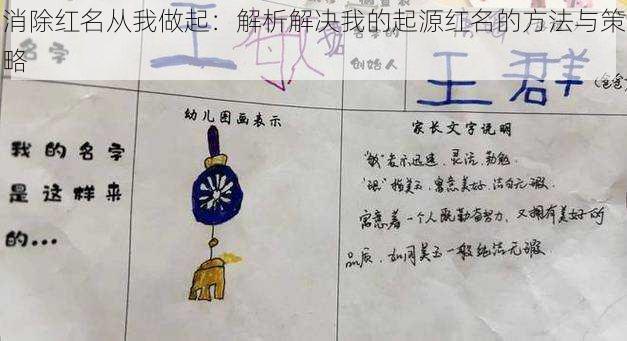 消除红名从我做起：解析解决我的起源红名的方法与策
略
名字
王敏
名字的
创始人
王群
(爸爸
我的名字
是这样来
的...
幼儿图画表示
家长文字说明
"敏"表示迅速，灵活，勤勉。
"琨"指美玉，寓意美好，洁白无瑕。
寓意着一个人既勤奋努力，又拥有美好的
品质，如同美玉一般纯洁无瑕。